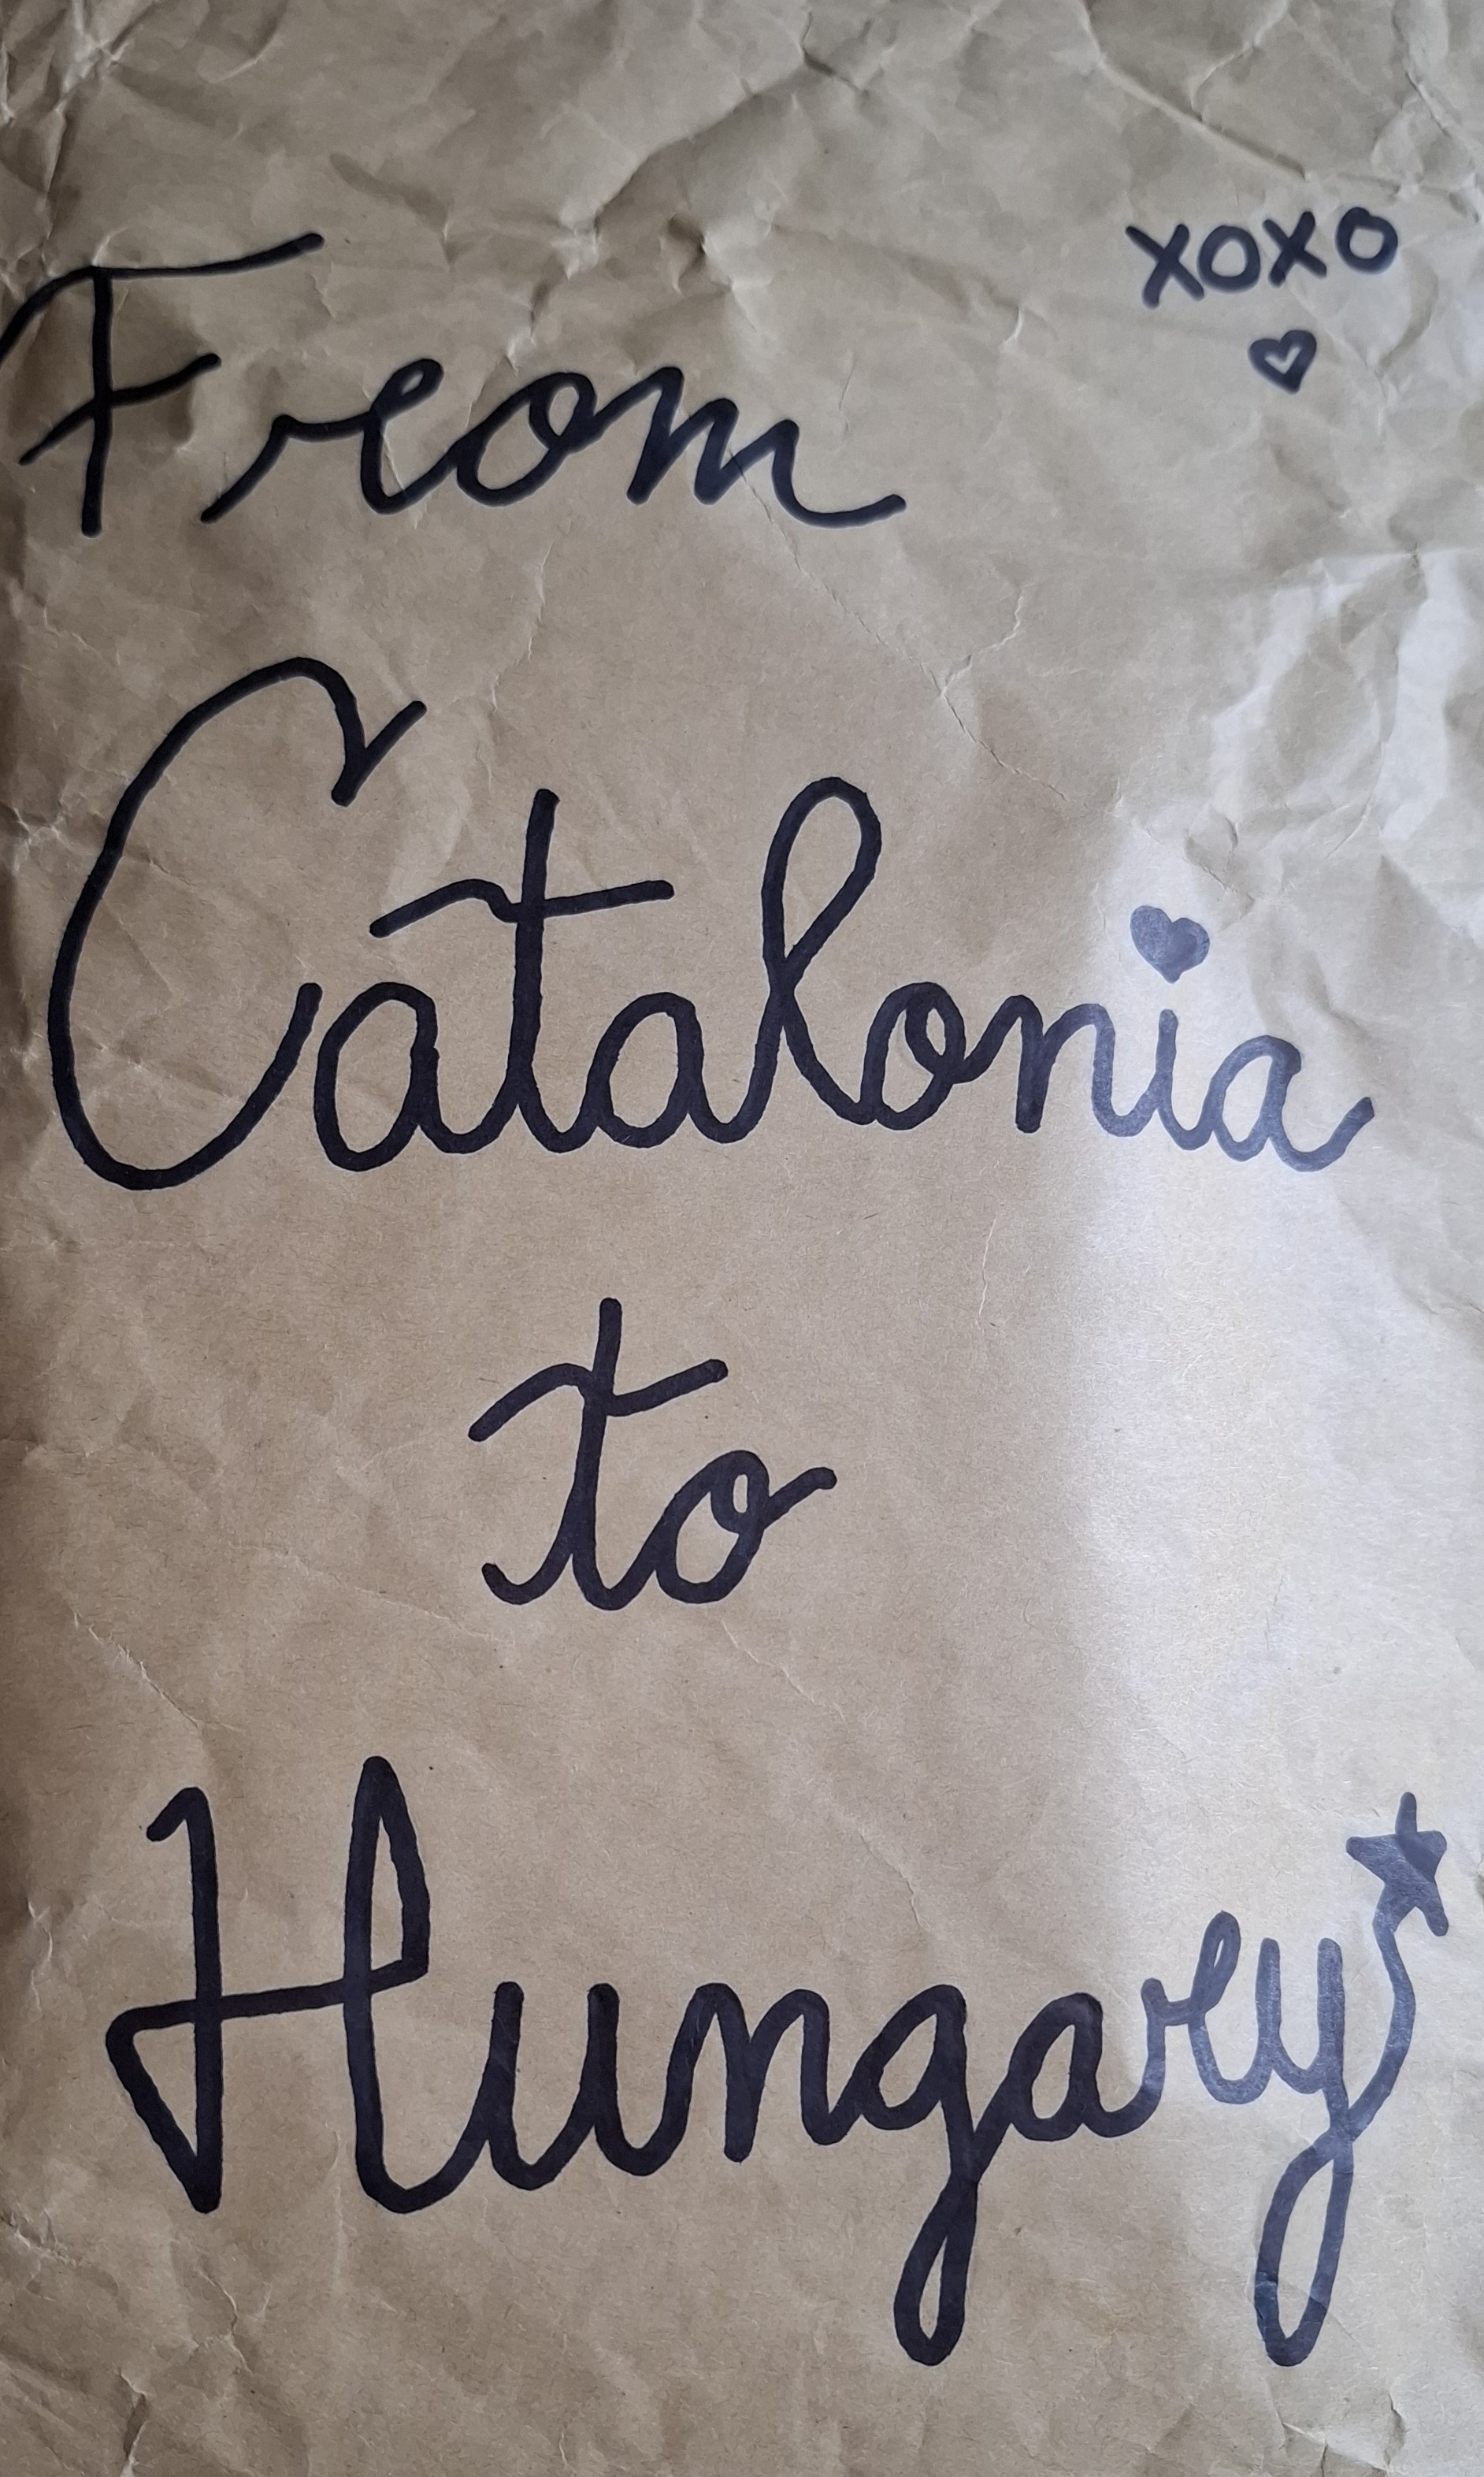 xoxo
From
Catalonia
to
Hungary